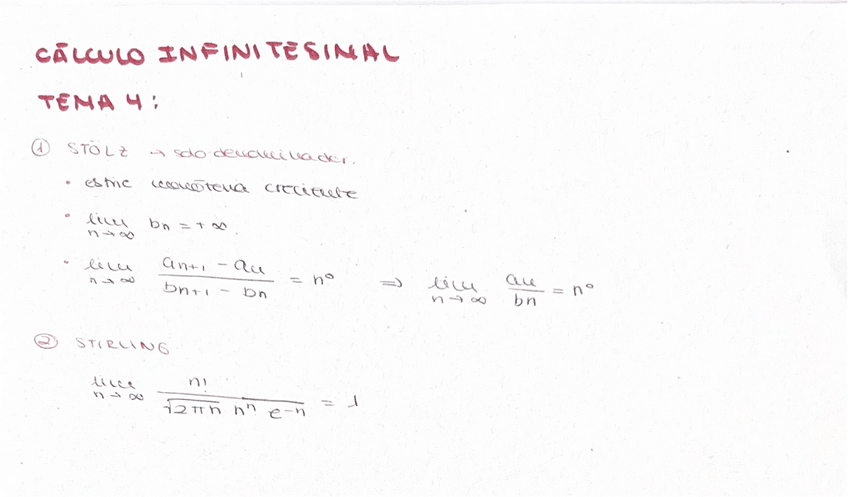 CÁLCULO INFINITESIMAL
TEMA 4:
① STÖLZ → solo denominador.
• estric monótona creciente
• lim n→∞ bn = +∞.
• lim n→∞ (an+1 - an)/(bn+1 - bn) = nº ⇒ lim n→∞ an/bn = nº
② STIRLING
lim n→∞ n!/(√2πn nⁿ e⁻ⁿ) = 1